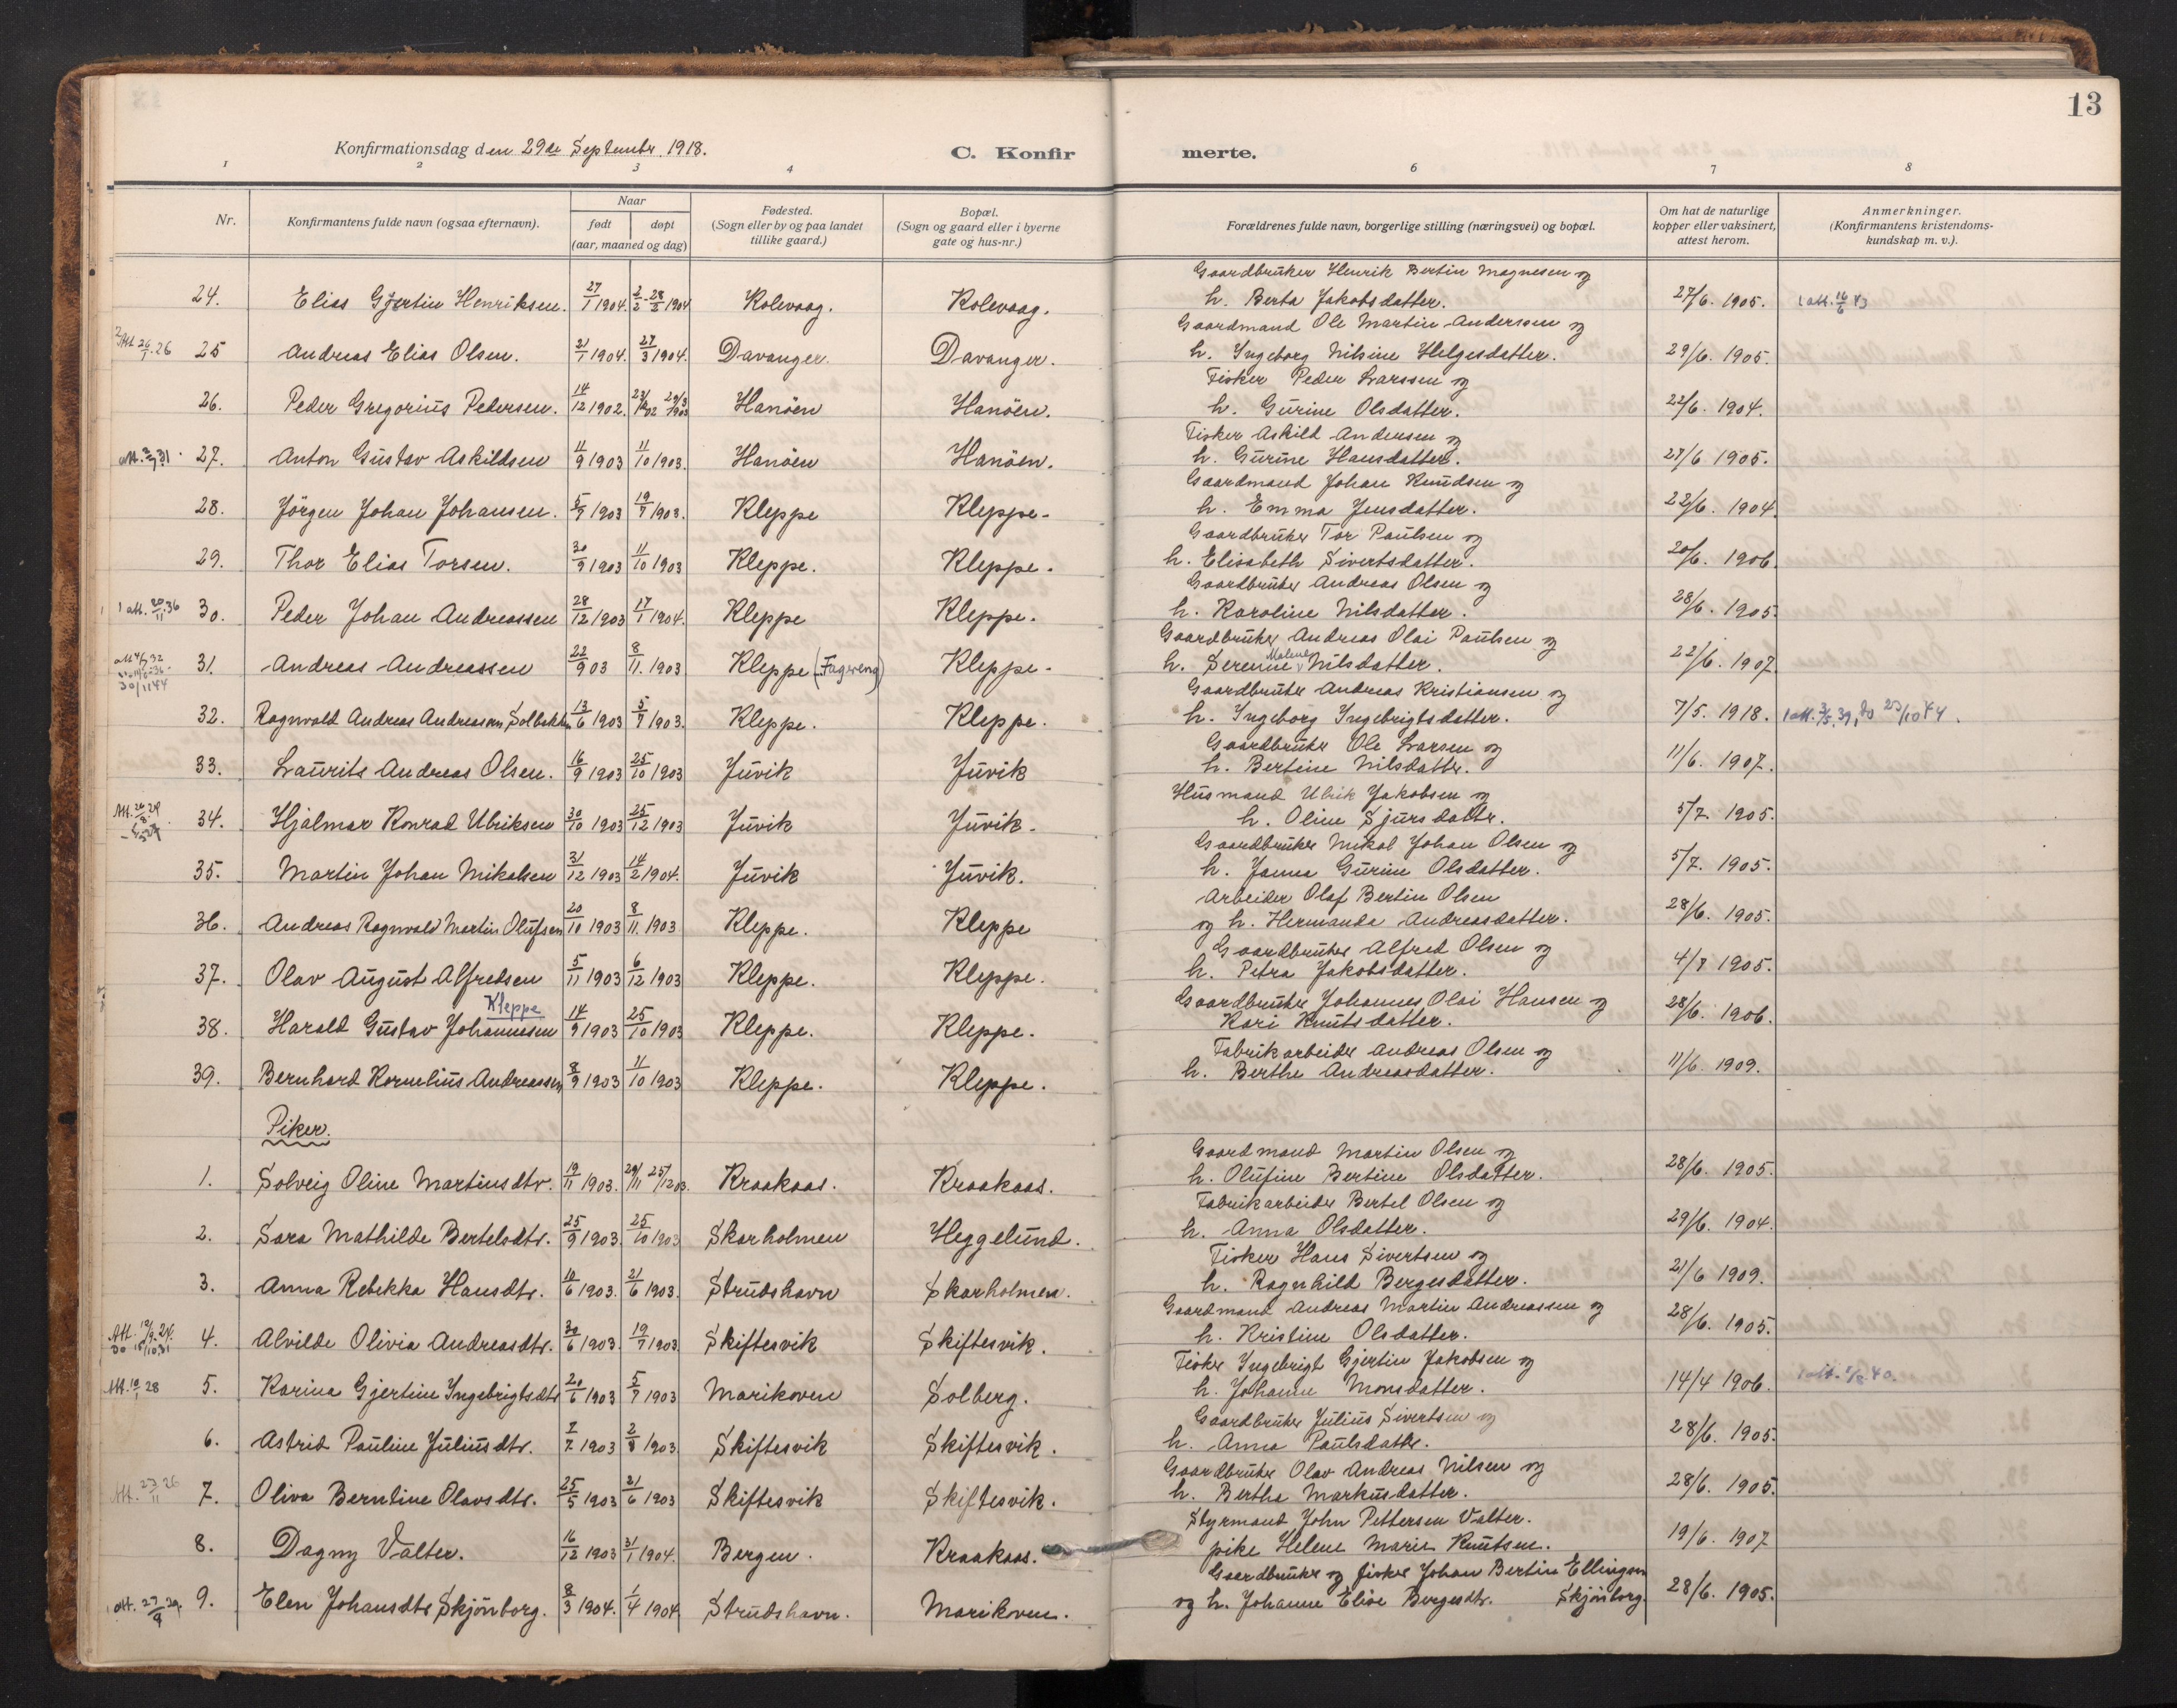 13
Konfirmationsdag den 29de Septembr. 1918.
C. Konfirmerte.
1 2 3 4 6 7 8
Nr. Konfirmantens fulde navn (ogsaa efternavn). Naar født døpt (aar, maaned og dag) Fødested. (Sogn eller by og paa landet tillike gaard.) Bopæl. (Sogn og gaard eller i byerne gate og hus-nr.) Forældrenes fulde navn, borgerlige stilling (næringsvei) og bopæl. Om hat de naturlige kopper eller vaksinert, attest herom. Anmerkninger. (Konfirmantens kristendomskundskap m. v.).
Gaardbruker Henrik Bertin Magnesen og
24. Elias Gjertin Henriksen. 27/1 1904. 2/2 - 28/2 1904 Kolevaag. Kolevaag. h. Berta Jakobsdatter. 27/6. 1905. 1 att. 16/6 43
Gaardmand Ole Martin Anderssen og
Att 26/1. 26 25 Andreas Elias Olsen. 21/1 1904. 27/3 1904. Davanger. Davanger. h. Ingeborg Nilsine Helgesdatter. 29/6. 1905.
Fisker Peder Larssen og
26. Peder Gregorius Pedersen. 14/12 1902. 29/3 1903 Hanöen Hanöen. h. Gurine Olsdatter. 22/6. 1904.
Fisker Askild Andersen og
27. Anton Gustav Askildsen 11/9 1903 11/10 1903. Hanöen Hanöen. h. Gurine Hansdatter. 27/6 1905.
Gaardmand Johan Knudsen og
28. Jörgen Johan Johansen. 5/7 1903 19/7 1903. Kleppe Kleppe. h. Emma Jensdatter. 22/6. 1904.
Gaardbruker Tor Paulsen og
29. Thor Elias Torsen. 30/9 1903 11/10 1903 Kleppe. Kleppe. h. Elisabeth Sivertsdatter. 20/6. 1906.
Gaardbruker Andreas Olsen og
1 att. 20/11. 36 30. Peder Johan Andreassen 28/12 1903 17/1 1904. Kleppe Kleppe. h. Karoline Nilsdatter. 28/6. 1905.
Gaardbruker Andreas Olai Paulsen og
30/11 44 31. Andreas Andreassen 22/9 03 8/11. 1903 Kleppe (Fagereng) Kleppe. h. Serenne Malene Nilsdatter. 22/6. 1907.
Gaardbruker Andreas Kristiansen og
32. Ragnvald Andreas Andreassen, Solbakken 13/6 1903 5/7 1903. Kleppe. Kleppe. h. Ingeborg Ingebrigtsdatter. 7/5. 1918. 1 att. 3/5. 39, do 23/10 44.
Gaardbruker Ole Larsen og
33. Laurits Andreas Olsen. 16/9 1903 25/10 1903 Juvik Juvik h. Bertine Nilsdatter. 11/6. 1907.
Husmand Ulrik Jakobsen og
34. Hjalmar Konrad Ulriksen 30/10 1903 25/12 1903 Juvik Juvik. h. Oline Sjursdatter. 5/7. 1905.
Gaardbruker Mikal Johan Olsen og
35. Martin Johan Mikalsen 31/12 1903 14/2 1904. Juvik Juvik. h. Janna Gurine Olsdatter. 5/7. 1905.
Arbeider Olaf Bertin Olsen
36. Andreas Ragnvald Martin Olufsen 20/10 1903 8/11. 1903 Kleppe. Kleppe og h. Hermanda Andreasdatter. 28/6. 1905.
Gaardbruker Alfred Olsen og
37. Olav August Alfredsen 5/11 1903 6/12 1903 Kleppe. Kleppe. h. Petra Jakobsdatter. 4/8 1905.
Kleppe Gaardbruker Johannes Olai Hansen og
38. Harald Gustav Johannesen 14/9 1903 25/10 1903 Kleppe. Kleppe. Kari Knutsdatter. 28/6. 1906.
Fabrikarbeider Andreas Olsen og
39. Bernhard Kornelius Andreassen 8/9 1903 11/10 1903 Kleppe. Kleppe. h. Berthe Andreasdatter. 11/6. 1909.
Piker.
Gaardmand Martin Olsen og
1. Solveig Oline Martinsdtr. 19/11 1903. 29/11 25/12 03. Kraakaas. Kraakaas. h. Olufine Bertine Olsdatter. 28/6. 1905.
Fabrikarbeider Bertel Olsen og
2. Sara Mathilde Bertelsdtr. 25/9 1903. 25/10 1903 Skarholmen Heggelund. h. Anna Olsdatter. 29/6. 1904.
Fisker Hans Sivertsen og
3. Anna Rebekka Hansdtr. 10/6 1903. 21/6 1903. Strudshavn Skarholmen. h. Ragnhild Bergesdatter. 21/6 1909.
Gaardmand Andreas Martin Andreassen og
4. Alvilde Olivia Andreasdtr. 30/6 1903. 19/7 1903 Skiftesvik Skiftesvik. h. Kristine Olsdatter. 28/6. 1905.
Fisker Ingebrigt Gjertin Jakobsen og
Att. 10/1 28 5. Karina Gjertine Ingebrigtsdtr 20/6 1903 5/7 1903 Marikoven Solberg. h. Johanne Monsdatter. 14/4 1906.
Gaardbruker Julius Sivertsen og
6. Astrid Pauline Juliusdtr. 7/7 1903 2/8 1903 Skiftesvik Skiftesvik. h. Anna Paulsdatter. 28/6. 1905.
Gaardbruker Olav Andreas Nilsen og
Att. 23/11 26 7. Oliva Berntine Olavsdtr. 25/5 1903 21/6 1903 Skiftesvik Skiftesvik. h. Bertha Markusdatter. 28/6. 1905.
Styrmand John Pettersen Valter.
8. Dagny Valter. 16/12 1903 31/1 1904. Bergen. Kraakaas. pike Helene Marie Knutsen. 19/6. 1907
Gaardbruker og fisker Johan Bertin Ellingsen
1 att. 27/9 29. 9. Elen Johansdtr Skjönborg. 8/3 1904. 1/4 1904 Strudshavn. Marikoven. og h. Johanne Elise Bergesdtr. Skjönborg. 28/6. 1905.